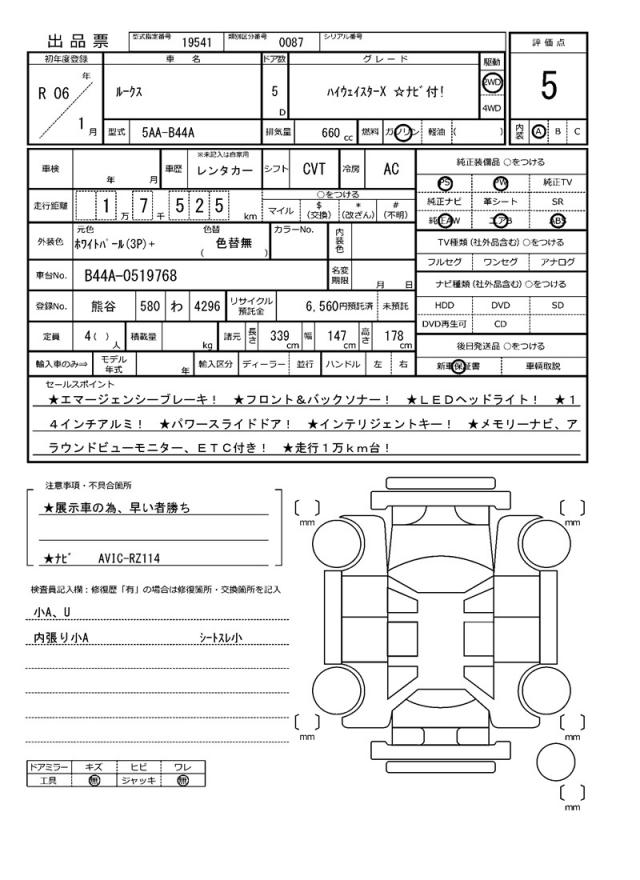 出品票 型式指定番号 19541 類別区分番号 0087 シリアル番号
評価点
5
内装 A B C
初年度登録 車名 ドア数 グレード 駆動
R 06 年 1 月 ルークス 5 D ハイウェイスターX ☆ナビ付! 2WD 4WD
型式 5AA-B44A 排気量 660 cc 燃料 ガソリン 軽油 ( )
車検 年 月 車歴 ※未記入は自家用 レンタカー シフト CVT 冷房 AC
走行距離 1 万 7 千 5 2 5 km ○をつける マイル $(交換) *(改ざん) #(不明)
外装色 元色 ホワイトパール(3P)+ 色替 ( 色替無 ) カラーNo. 内装色
車台No. B44A-0519768 名変期限 月 日
登録No. 熊谷 580 わ 4296 リサイクル預託金 6,560円預託済 未預託
定員 4( )人 積載量 kg 諸元 長さ 339 cm 幅 147 cm 高さ 178 cm
輸入車のみ⇒ モデル年式 年 輸入区分 ディーラー 並行 ハンドル 左 右
純正装備品 ○をつける
PS PW 純正TV
純正ナビ 革シート SR
純正AW エアB ABS
TV種類(社外品含む)○をつける
フルセグ ワンセグ アナログ
ナビ種類(社外品含む)○をつける
HDD DVD SD
DVD再生可 CD
後日発送品 ○をつける
新車保証書 車輌取説
セールスポイント
★エマージェンシーブレーキ! ★フロント&バックソナー! ★LEDヘッドライト! ★1
4インチアルミ! ★パワースライドドア! ★インテリジェントキー! ★メモリーナビ、ア
ラウンドビューモニター、ETC付き! ★走行1万km台!
注意事項・不具合箇所
★展示車の為、早い者勝ち
★ナビ AVIC-RZ114
検査員記入欄:修復歴「有」の場合は修復箇所・交換箇所を記入
小A、U
内張り小A シートスレ小
ドアミラー キズ ヒビ ワレ
工具 無 ジャッキ 無
〔 〕mm
〔 〕mm
〔 〕mm
〔 〕mm
〔 〕mm